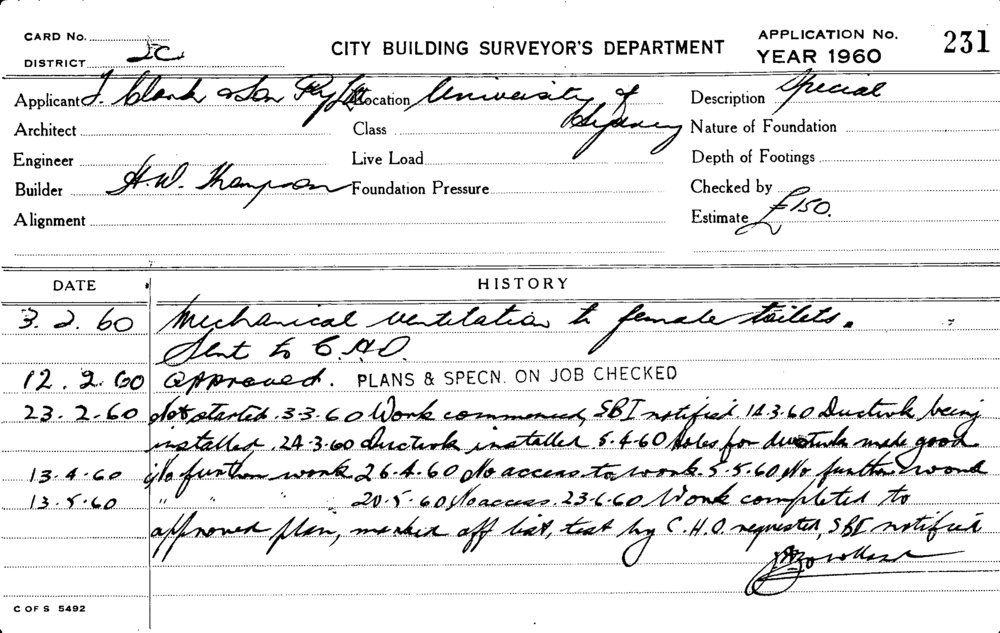 CARD No.
CITY BUILDING SURVEYOR'S DEPARTMENT
APPLICATION No. 231
YEAR 1960
DISTRICT 2C
Applicant J. Clark & Son Pty Ltd Location University of Sydney Description Special
Architect Class Nature of Foundation
Engineer Live Load Depth of Footings
Builder H.W. Thompson Foundation Pressure Checked by
Alignment Estimate £150.
DATE HISTORY
3.2.60 Mechanical ventilation to female toilets.
Sent to C.H.O.
12.2.60 Approved. PLANS & SPECN. ON JOB CHECKED
23.2.60 Not started. 3-3-60 Work commenced, SBI notified 14.3.60 Ductwork being
installed. 24-3-60 Ductwork installed 5-4-60 Holes for ductwork made good
13.4.60 No further work 26.4.60 No access to work. 5.5.60 No further work
13.5.60 " " " 20.5.60 No access. 23.6.60 Work completed to
approved plan, marked off list, test by C.H.O. requested, SBI notified
C OF S 5492